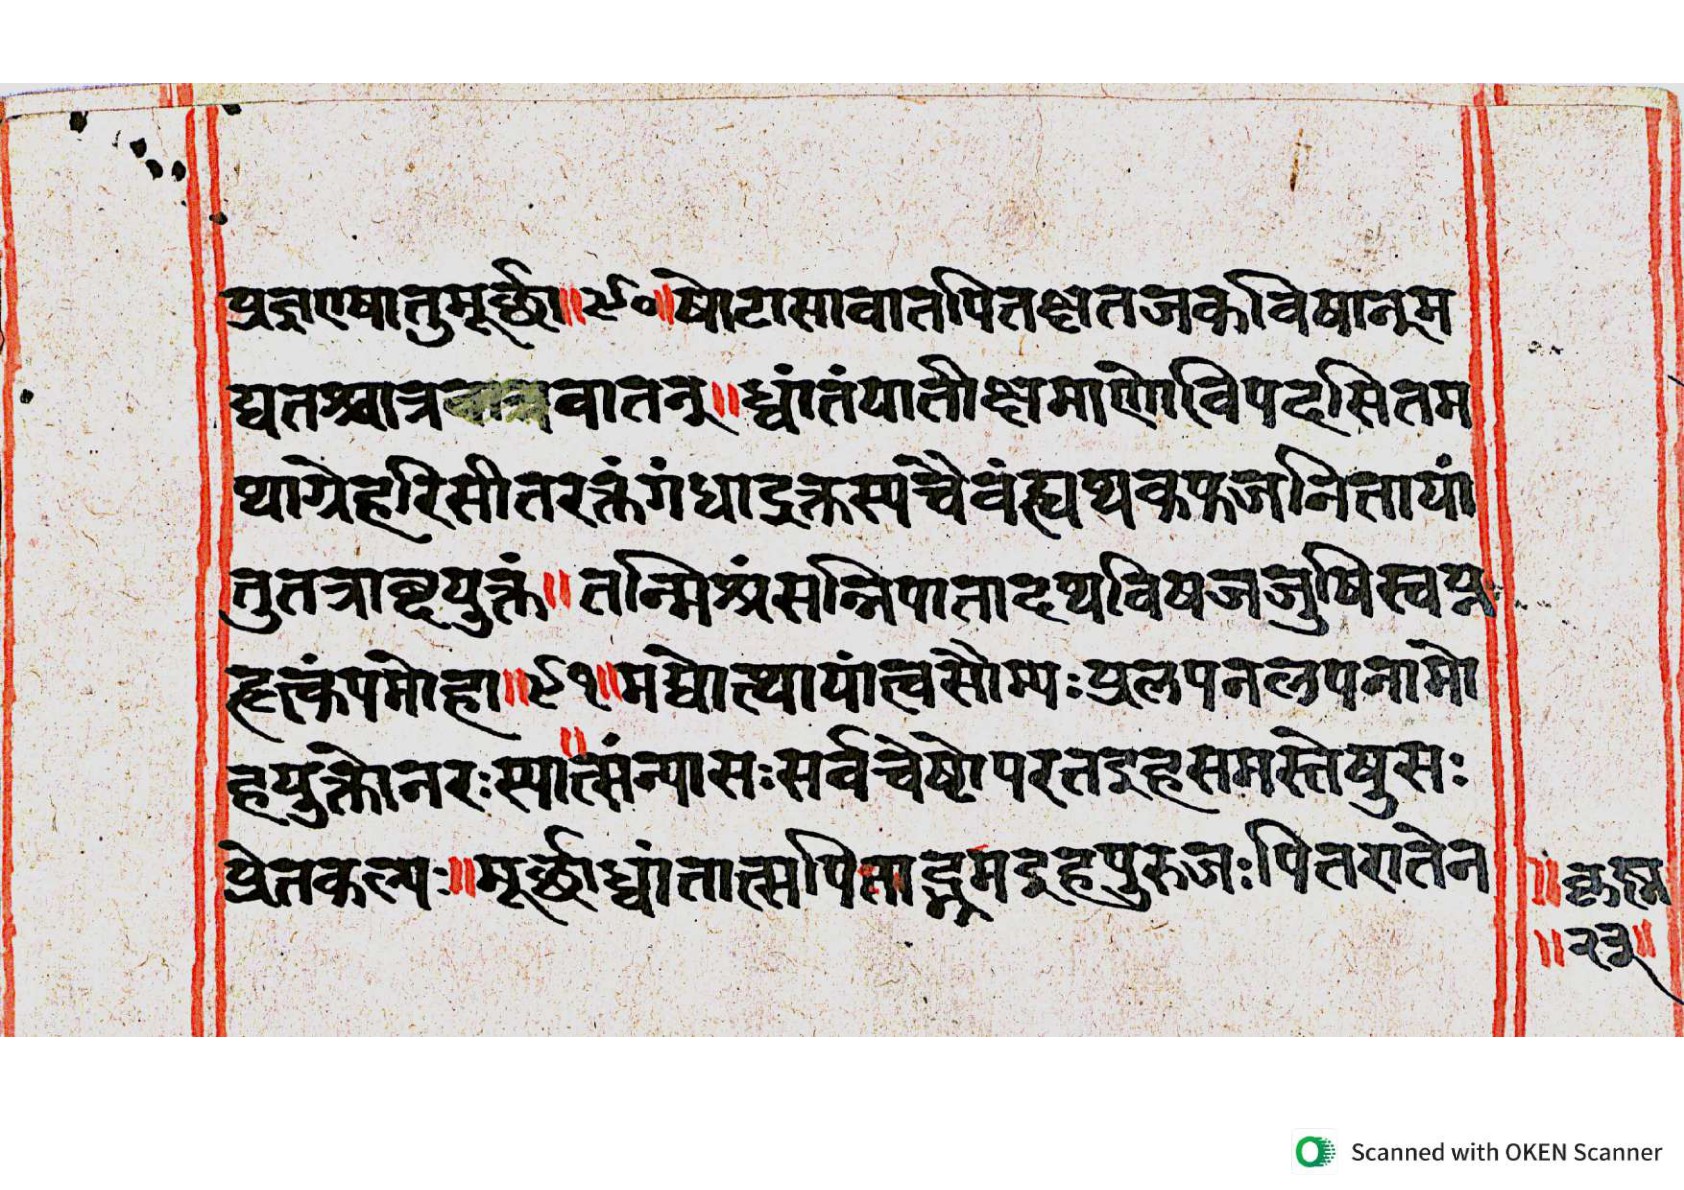 प्रज्ञाएषातुमूर्छा॥९०॥षोटासावातपितक्षतजकविषानूम
द्यतश्चात्रवातनू॥ध्वांतंयातीक्ष्यमाणोविपदसितम
थाग्रेहरिसीतरक्तंगंधाद्रक्तस्यचैवंह्यथकफजनितायां
तुतत्राब्दयुक्तं॥तन्मिश्रंसन्निपातादथविषजजुषिस्वप्न
हृत्कंपमोहा॥९१॥मद्योत्थायांत्वसौम्यःप्रलपनलपनामो
हयुक्तोनरःस्यात्संन्यासःसर्वचेष्टोपरतदृहसमस्तेषुसः
प्रेतकल्पः॥मूर्छाध्वांतात्मपिताद्भ्रमदृहपुरुजःपितरातेन
॥२३॥
Scanned with OKEN Scanner